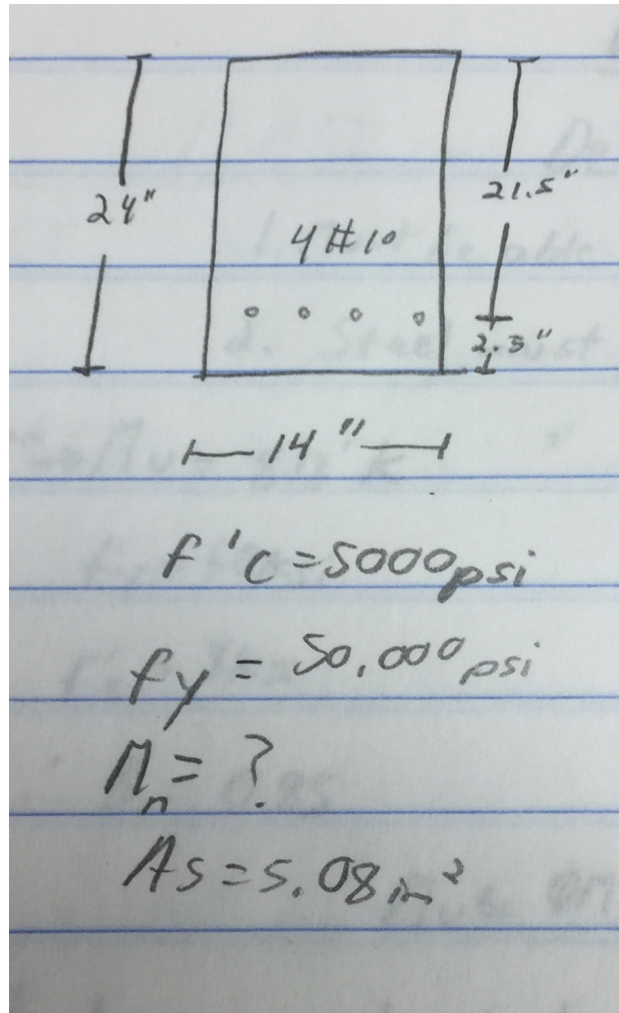 24"
21.5"
4#10
2.5"
14"
f'c=5000psi
fy = 50,000 psi
Mn= ?
As=5.08in²